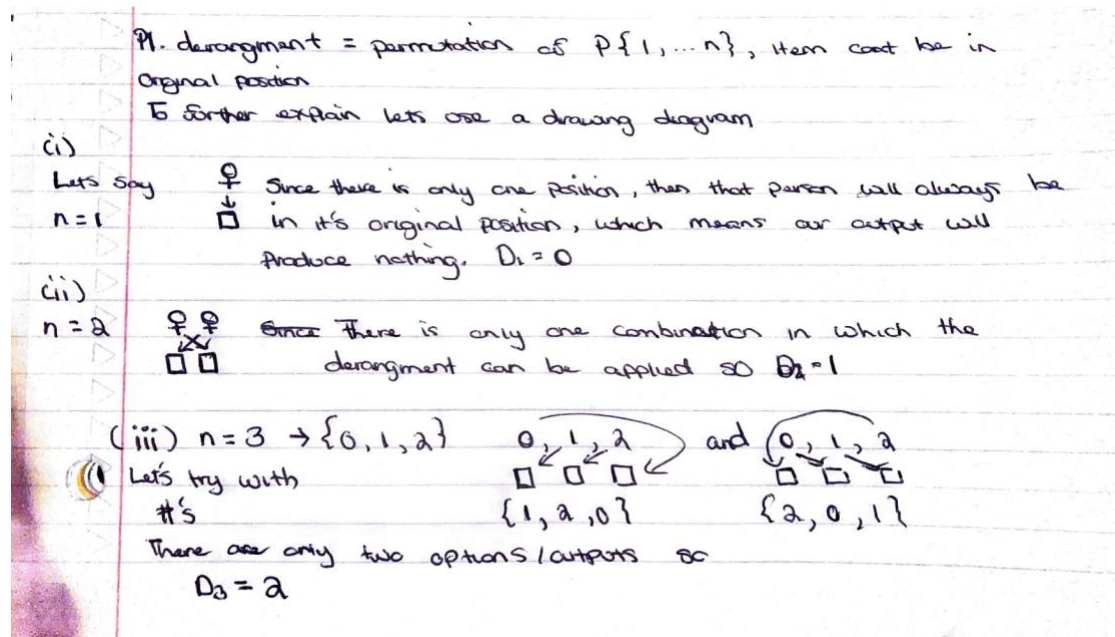 P1. derangment = permutation of P{1, ... n}, item cant be in
Orginal position
To further explain lets use a drawing diagram
(i)
Lets say
n = 1
Since there is only one position, then that person will always be
in it's original position, which means our output will
Produce nothing. D₁ = 0
(ii)
n = 2
Since There is only one combination in which the
derangment can be applied so D₂ = 1
(iii) n = 3 → {0, 1, 2} 0, 1, 2 and 0, 1, 2
Let's try with
#'s {1, 2, 0} {2, 0, 1}
There are only two options / outputs so
D₃ = 2